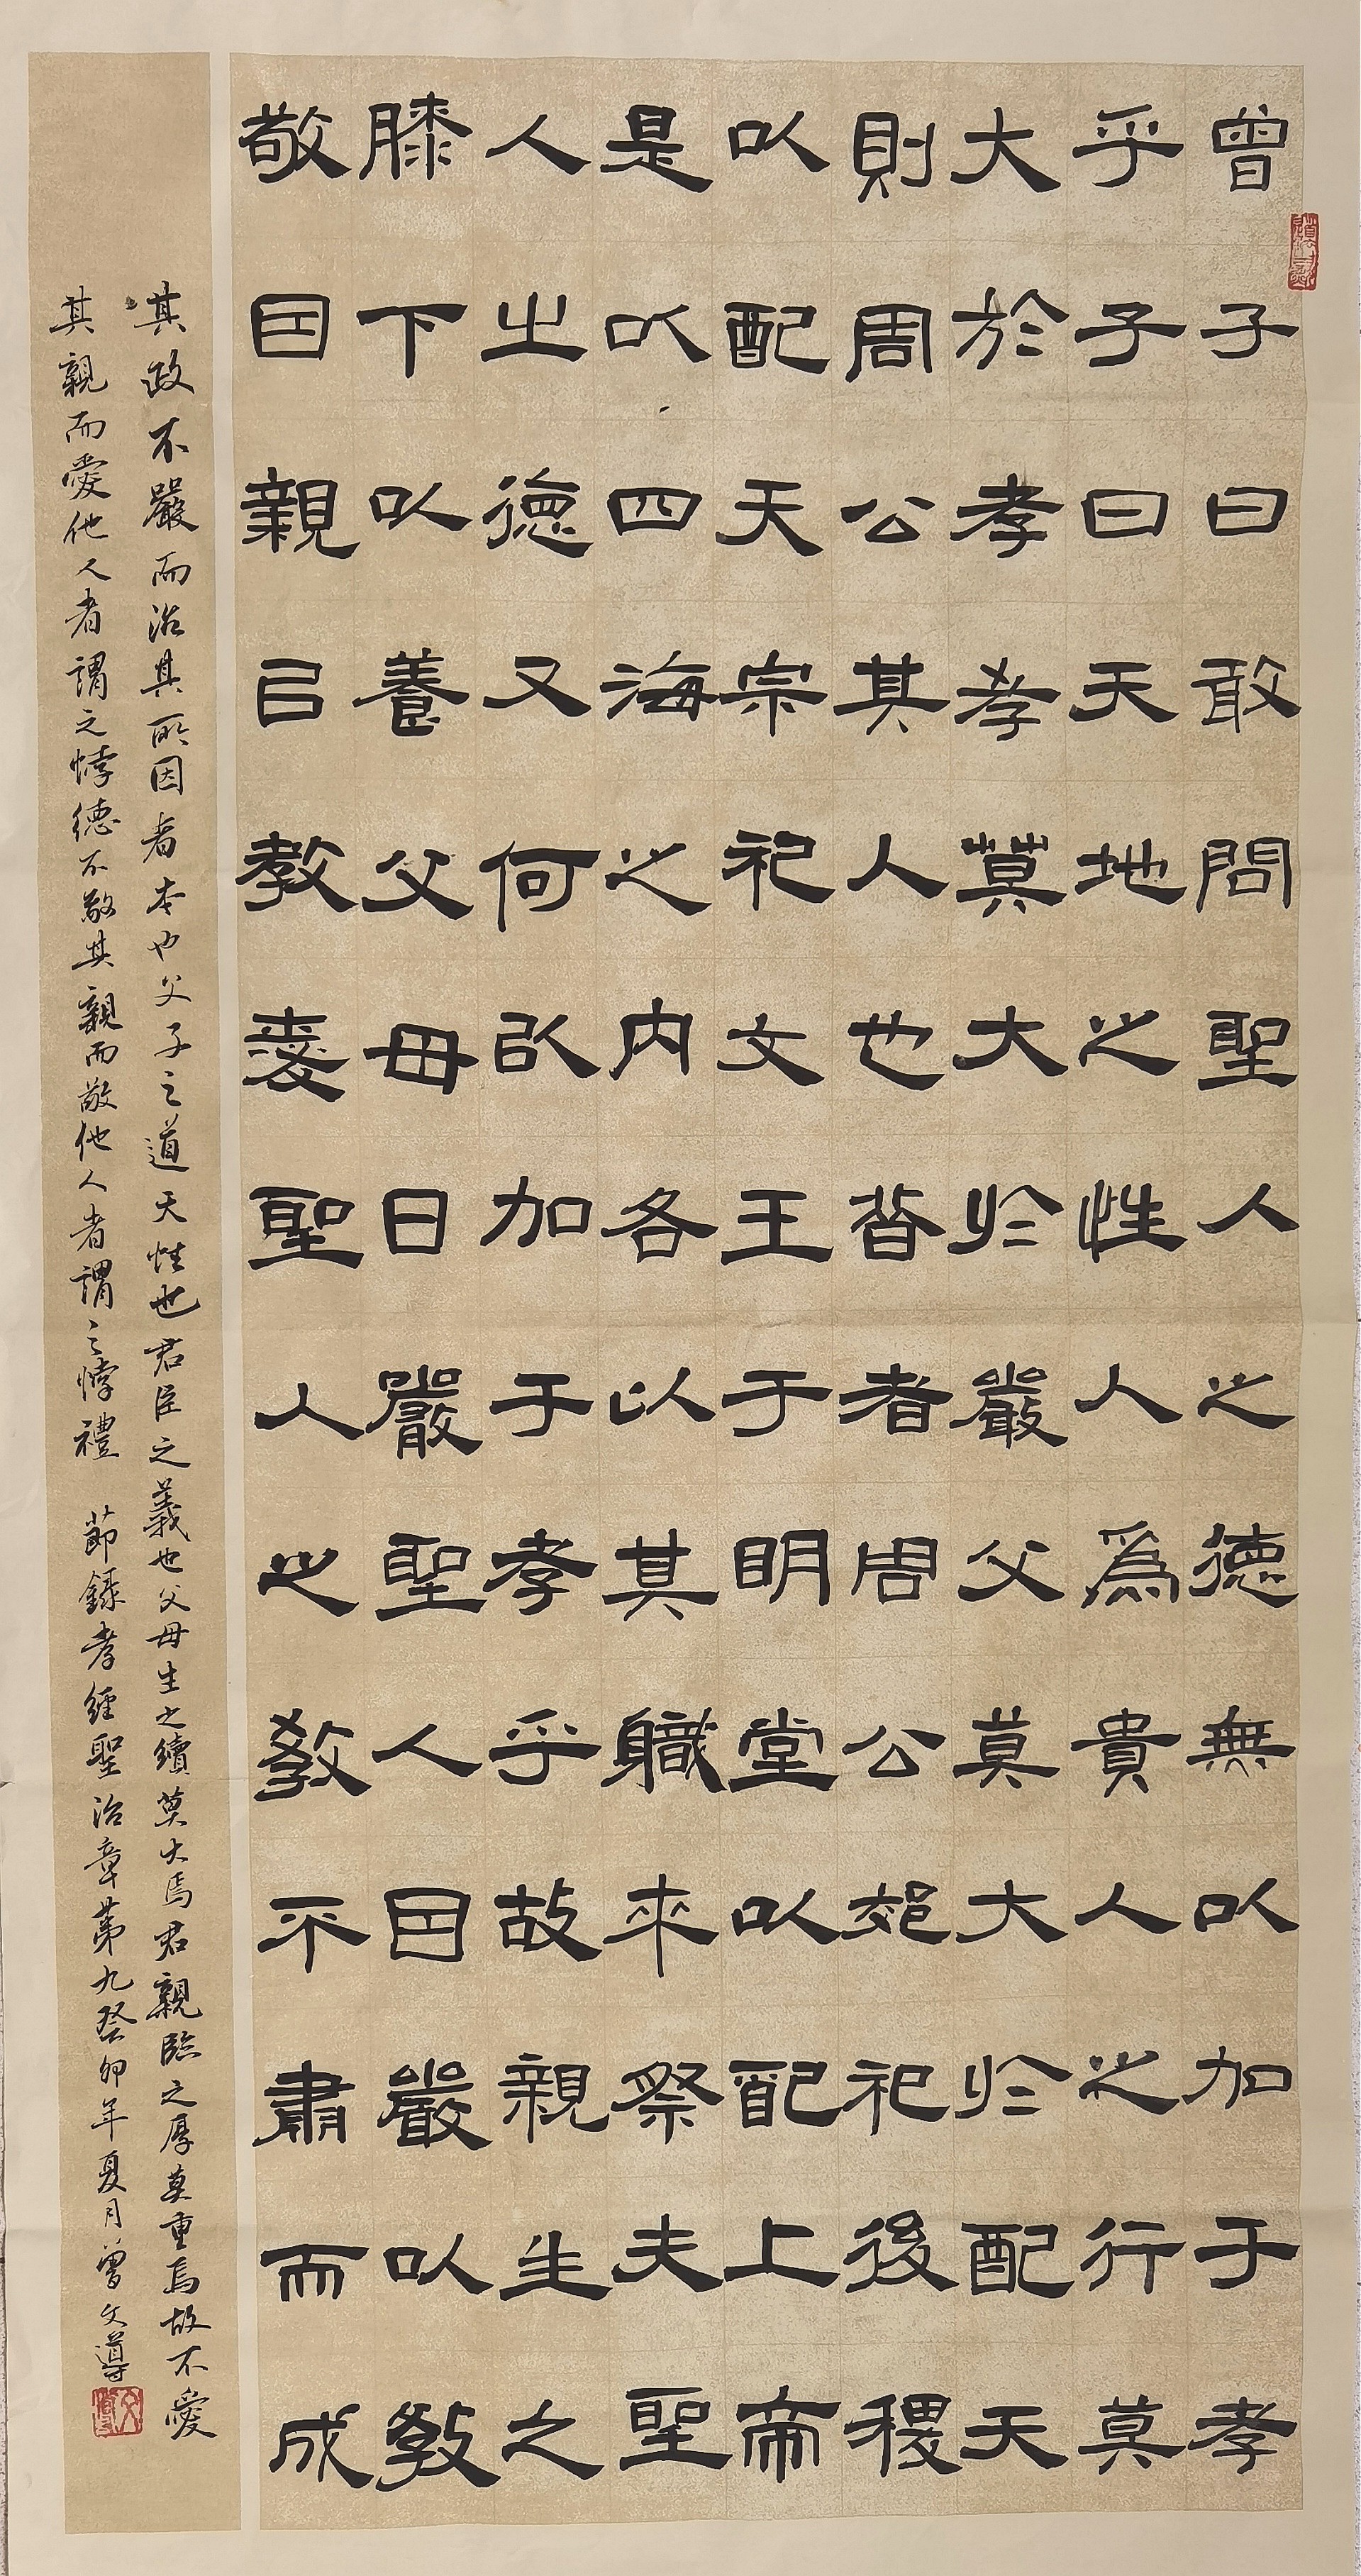 曾子曰敢問聖人之德無以加于孝
乎子曰天地之性人為貴人之行莫
大於孝孝莫大於嚴父莫大於配天
則周公其人也昔者周公郊祀后稷
以配天宗祀文王于明堂以配上帝
是以四海之內各以其職來祭夫聖
人之德又何以加于孝乎故親生之
膝下以養父母日嚴聖人因嚴以教
敬因親以教愛聖人之教不肅而成
其政不嚴而治其所因者本也父子之道天性也君臣之義也父母生之續莫大焉君親臨之厚莫重焉故不愛
其親而愛他人者謂之悖德不敬其親而敬他人者謂之悖禮 節錄孝經聖治章第九癸卯年夏月曾文導